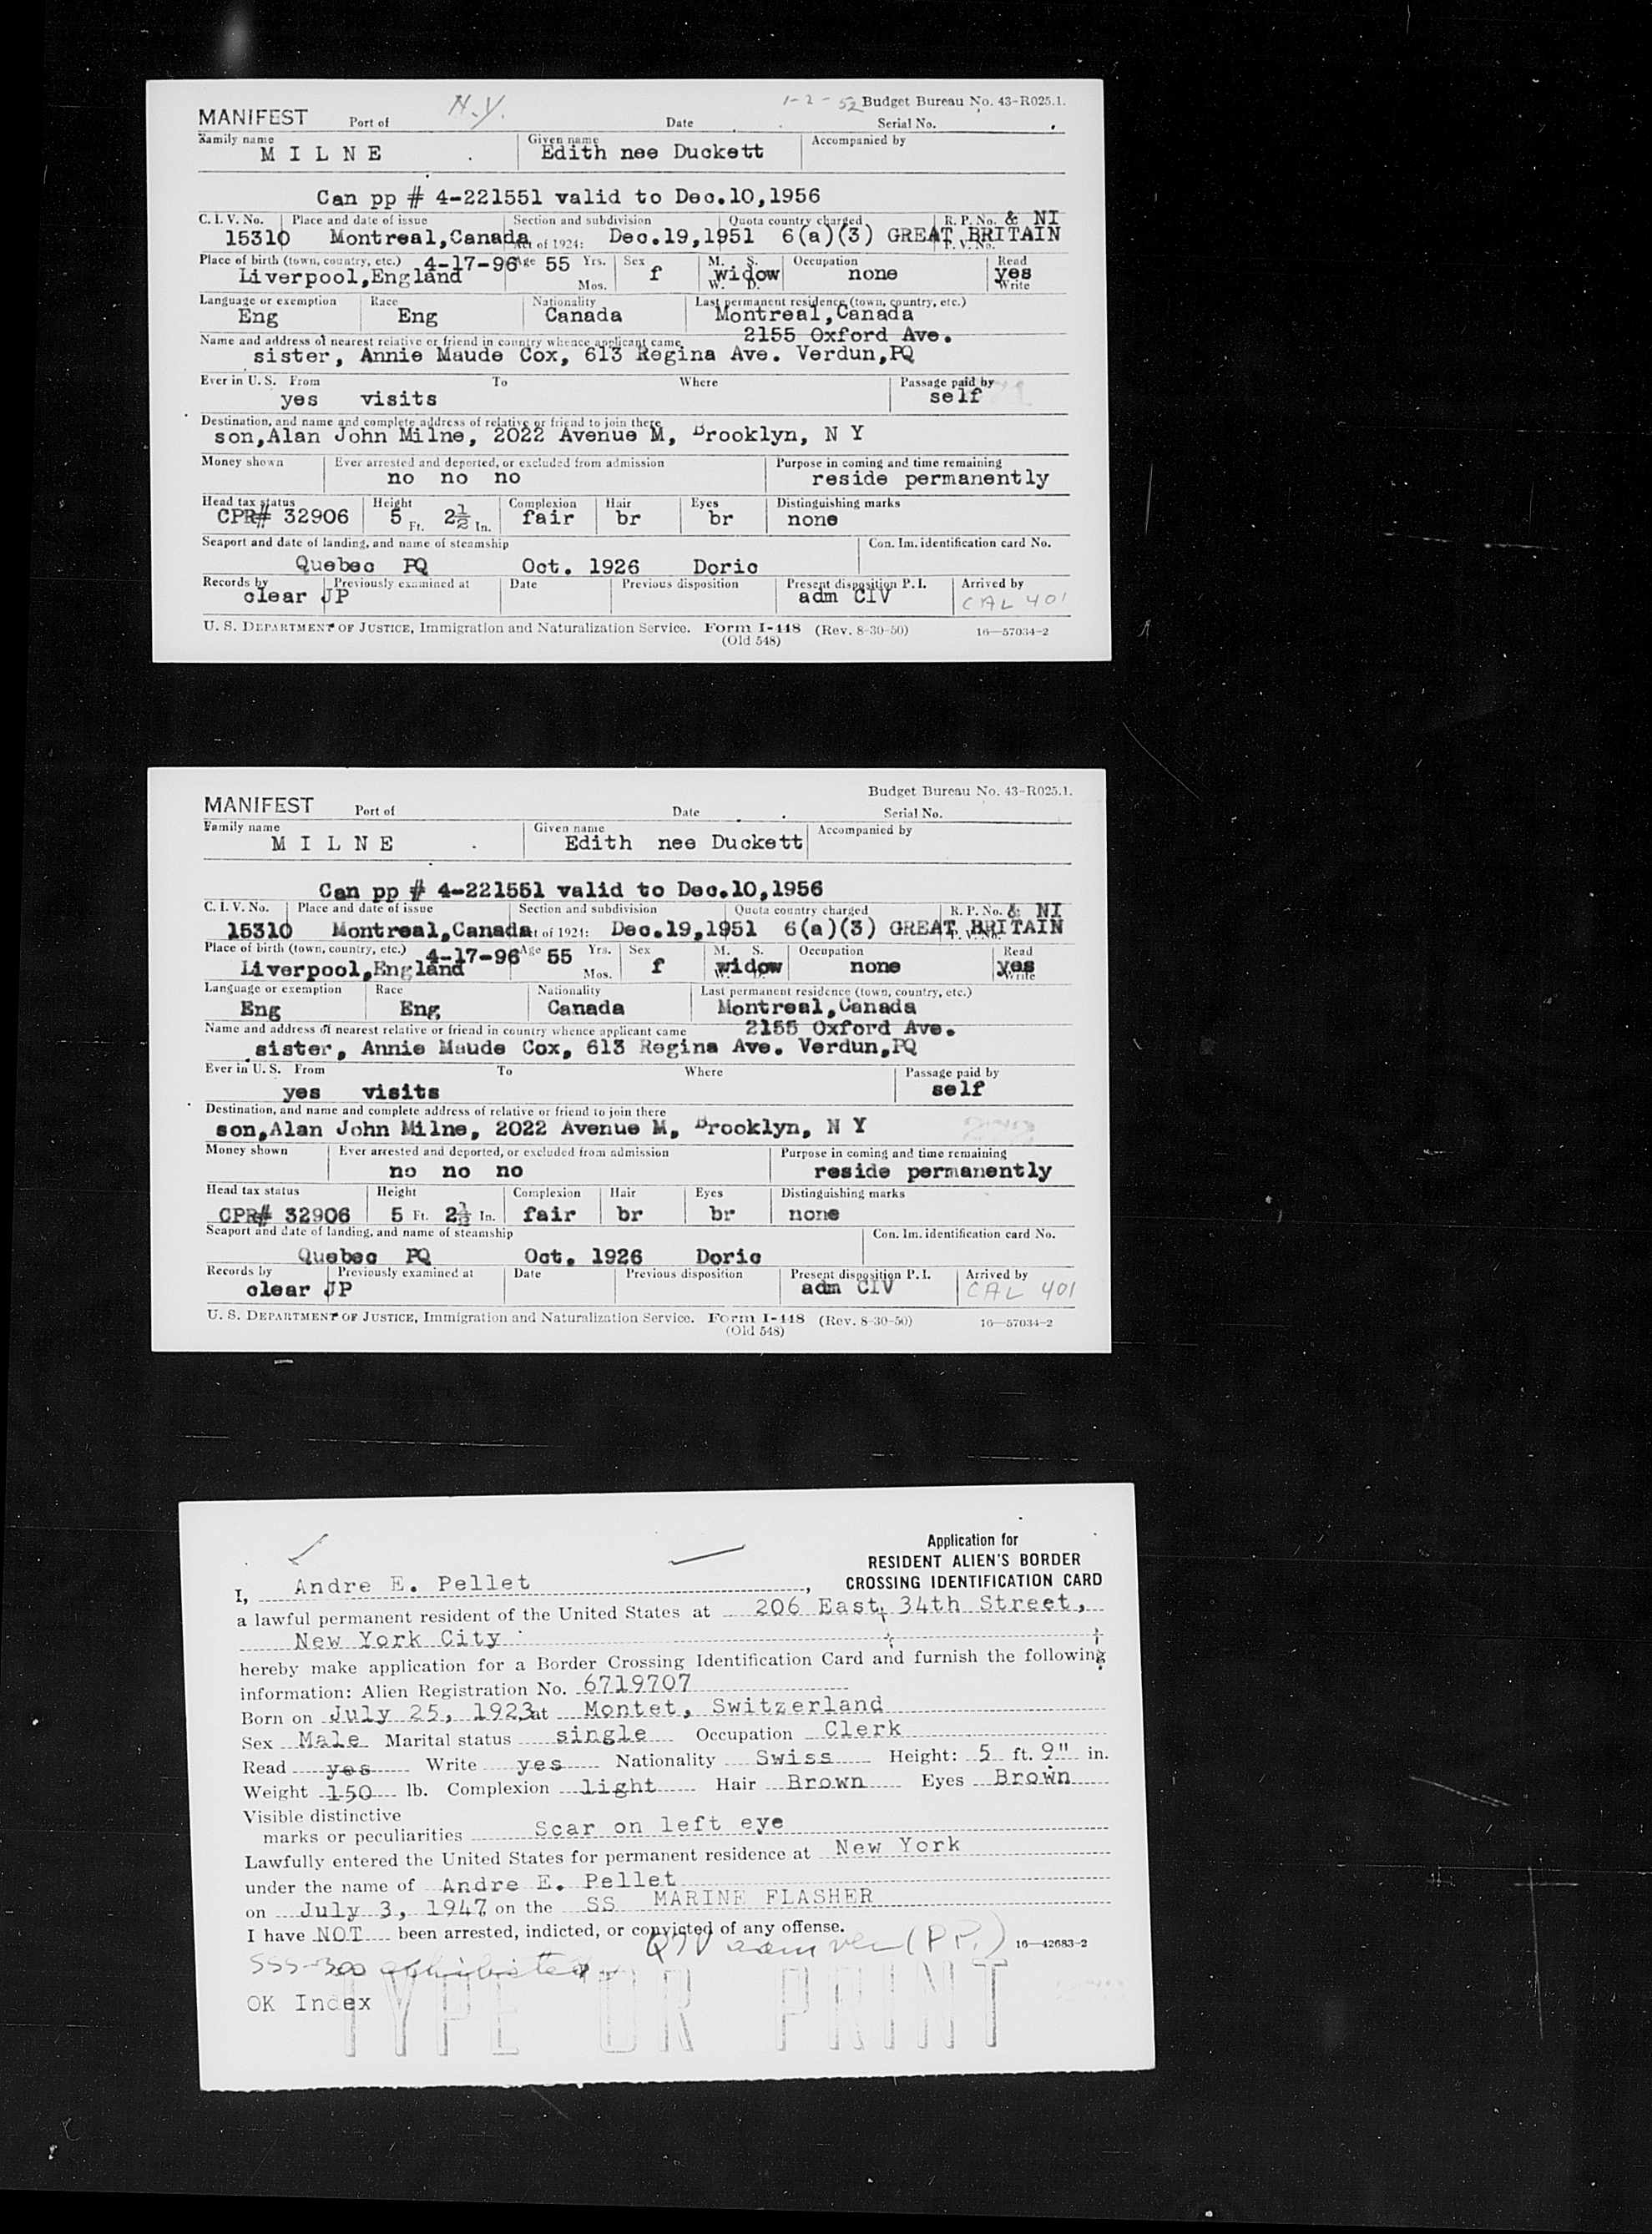 N.Y. 1-2-52 Budget Bureau No. 43-R025.1.
MANIFEST Port of Date Serial No.
Family name Given name Accompanied by
M I L N E Edith nee Duckett
Can pp # 4-221551 valid to Dec.10,1956
C. I. V. No. Place and date of issue Section and subdivision Quota country charged R. P. No. & NI
15310 Montreal,Canada Act of 1924: Dec.19,1951 6(a)(3) GREAT BRITAIN
P. V. No.
Place of birth (town, country, etc.) 4-17-96 Age 55 Yrs. Sex M. S. Occupation Read
Liverpool,England Mos. f widow none yes
W. D. Write
Language or exemption Race Nationality Last permanent residence (town, country, etc.)
Eng Eng Canada Montreal,Canada
2155 Oxford Ave.
Name and address of nearest relative or friend in country whence applicant came
sister, Annie Maude Cox, 613 Regina Ave. Verdun,PQ
Ever in U. S. From To Where Passage paid by
yes visits self
Destination, and name and complete address of relative or friend to join there
son,Alan John Milne, 2022 Avenue M, Brooklyn, N Y
Money shown Ever arrested and deported, or excluded from admission Purpose in coming and time remaining
no no no reside permanently
Head tax status Height Complexion Hair Eyes Distinguishing marks
CPR# 32906 5 Ft. 2½ In. fair br br none
Seaport and date of landing, and name of steamship Con. Im. identification card No.
Quebec PQ Oct. 1926 Doric
Records by Previously examined at Date Previous disposition Present disposition P. I. Arrived by
clear JP adm CIV CAL 401
U. S. DEPARTMENT OF JUSTICE, Immigration and Naturalization Service. Form I-448 (Rev. 8-30-50) 16—57034-2
(Old 548)
Budget Bureau No. 43-R025.1.
MANIFEST Port of Date Serial No.
Family name Given name Accompanied by
M I L N E Edith nee Duckett
Can pp # 4-221551 valid to Dec.10,1956
C. I. V. No. Place and date of issue Section and subdivision Quota country charged R. P. No. & NI
15310 Montreal,Canada Act of 1924: Dec.19,1951 6(a)(3) GREAT BRITAIN
P. V. No.
Place of birth (town, country, etc.) 4-17-96 Age 55 Yrs. Sex M. S. Occupation Read
Liverpool,England Mos. f widow none yes
W. D. Write
Language or exemption Race Nationality Last permanent residence (town, country, etc.)
Eng Eng Canada Montreal,Canada
Name and address of nearest relative or friend in country whence applicant came 2155 Oxford Ave.
sister, Annie Maude Cox, 613 Regina Ave. Verdun,PQ
Ever in U. S. From To Where Passage paid by
yes visits self
Destination, and name and complete address of relative or friend to join there
son,Alan John Milne, 2022 Avenue M, Brooklyn, N Y
Money shown Ever arrested and deported, or excluded from admission Purpose in coming and time remaining
no no no reside permanently
Head tax status Height Complexion Hair Eyes Distinguishing marks
CPR# 32906 5 Ft. 2½ In. fair br br none
Seaport and date of landing, and name of steamship Con. Im. identification card No.
Quebec PQ Oct. 1926 Doric
Records by Previously examined at Date Previous disposition Present disposition P. I. Arrived by
clear JP adm CIV CAL 401
U. S. DEPARTMENT OF JUSTICE, Immigration and Naturalization Service. Form I-448 (Rev. 8-30-50) 16—57034-2
(Old 548)
Application for
RESIDENT ALIEN'S BORDER
CROSSING IDENTIFICATION CARD
I, Andre E. Pellet,
a lawful permanent resident of the United States at 206 East 34th Street,
New York City
hereby make application for a Border Crossing Identification Card and furnish the following
information: Alien Registration No. 6719707
Born on July 25, 1923 at Montet, Switzerland
Sex Male Marital status single Occupation Clerk
Read yes Write yes Nationality Swiss Height: 5 ft. 9" in.
Weight 150 lb. Complexion light Hair Brown Eyes Brown
Visible distinctive
marks or peculiarities Scar on left eye
Lawfully entered the United States for permanent residence at New York
under the name of Andre E. Pellet
on July 3, 1947 on the SS MARINE FLASHER
I have NOT been arrested, indicted, or convicted of any offense.
16—42683-2
OK Index
TYPE OR PRINT